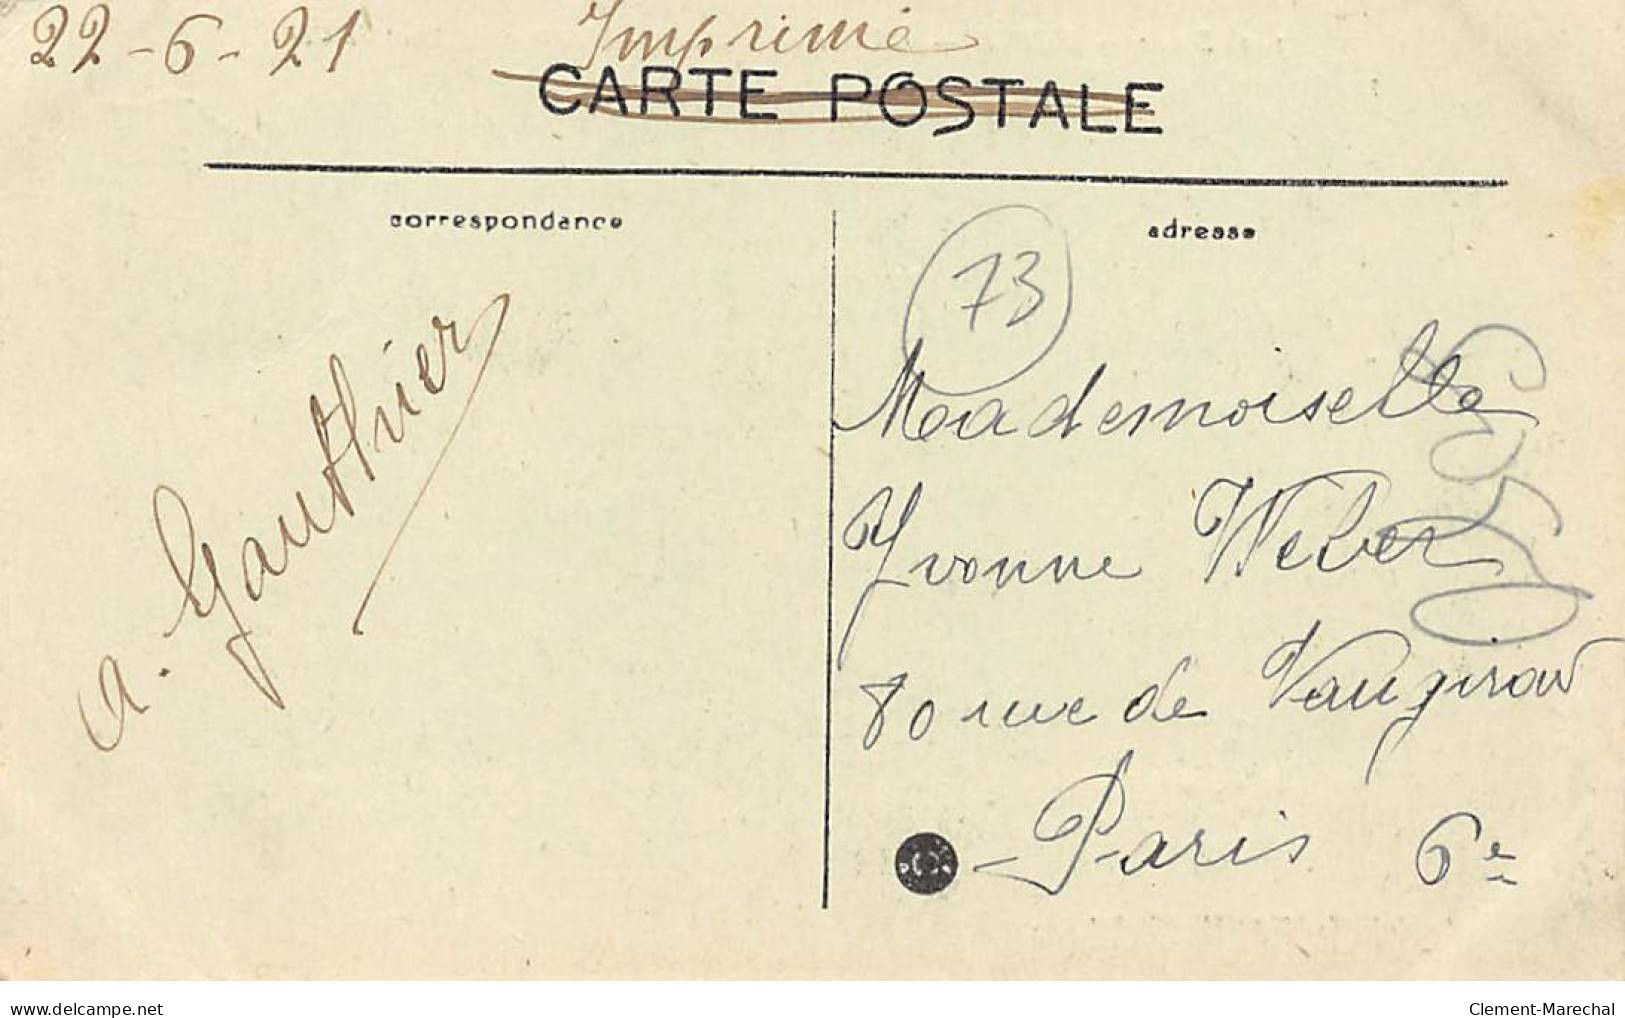 22-6-21
Imprimé
CARTE POSTALE
correspondance
adresse
73
a. Gauthier
Mademoiselle
Yvonne Weber
80 rue de Vaugirard
Paris 6e
www.delcampe.net
Clement-Marechal